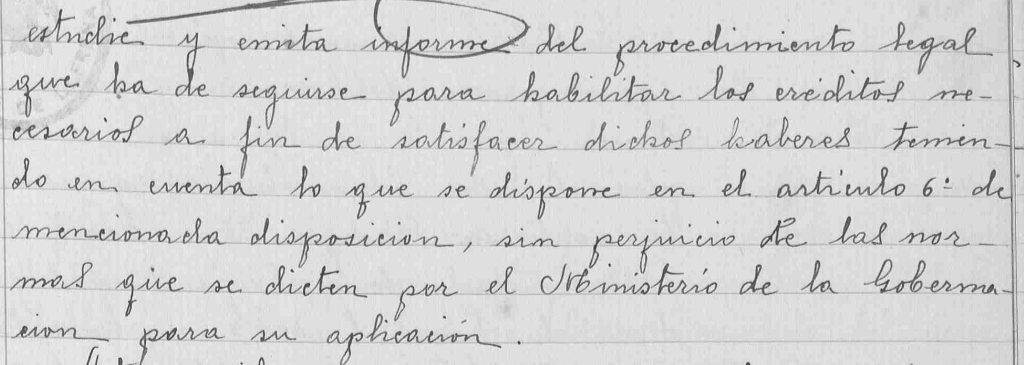 estudie y emita informe del procedimiento legal
que ha de seguirse para habilitar los créditos ne-
cesarios a fin de satisfacer dichos haberes tenien-
do en cuenta lo que se dispone en el articulo 6º de
mencionada disposicion, sin perjuicio de las nor-
mas que se dicten por el Ministerio de la Goberna-
cion para su aplicación.